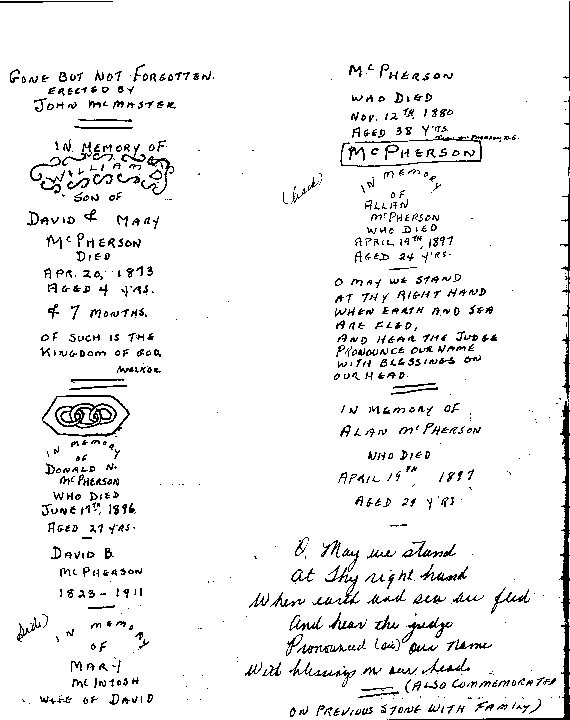 GONE BUT NOT FORGOTTEN.
ERECTED BY
JOHN MCMASTER
IN MEMORY OF
WILLIAM
SON OF
DAVID & MARY
MCPHERSON
DIED
APR. 20, 1873
AGED 4 YRS.
& 7 MONTHS.
OF SUCH IS THE
KINGDOM OF GOD.
WALKER
IN MEMORY
OF
DONALD N.
MCPHERSON
WHO DIED
JUNE 17TH, 1896
AGED 27 YRS.
DAVID B.
MCPHERSON
1823 - 1911
(Side)
IN MEMORY
OF
MARY
MCINTOSH
WIFE OF DAVID
MCPHERSON
WHO DIED
NOV. 12TH, 1880
AGED 38 YRS.
MCPHERSON
(back)
IN MEMORY
OF
ALLAN
MCPHERSON
WHO DIED
APRIL 19TH, 1897
AGED 24 YRS.
O MAY WE STAND
AT THY RIGHT HAND
WHEN EARTH AND SEA
ARE FLED,
AND HEAR THE JUDGE
PRONOUNCE OUR NAME
WITH BLESSINGS ON
OUR HEAD.
IN MEMORY OF
ALAN MCPHERSON
WHO DIED
APRIL 19TH 1897
AGED 24 YRS.
O, May we stand
At Thy right hand
When earth and sea are fled
And hear the judge
Pronounced (as) our name
With blessings on our heads
(ALSO COMMEMORATED
ON PREVIOUS STONE WITH FAMILY)